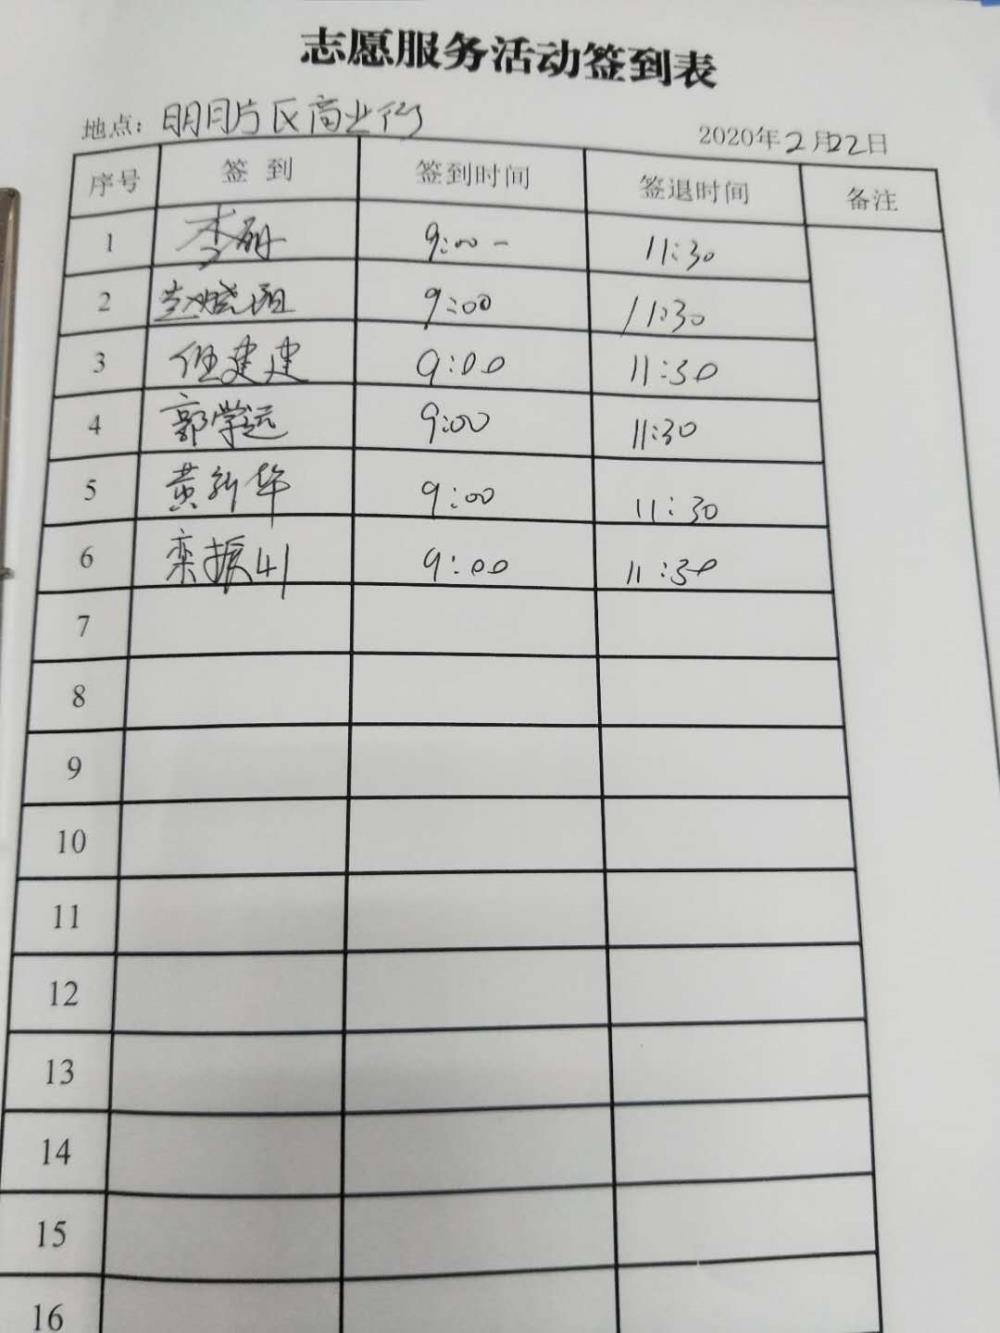 志愿服务活动签到表
地点：明月片区商业街 2020年2月22日
序号 签到 签到时间 签退时间 备注
1 李 9:00 - 11:30
2 赵晓 9:00 11:30
3 任建建 9:00 11:30
4 郭学远 9:00 11:30
5 黄新华 9:00 11:30
6 栾振 9:00 11:30
7
8
9
10
11
12
13
14
15
16